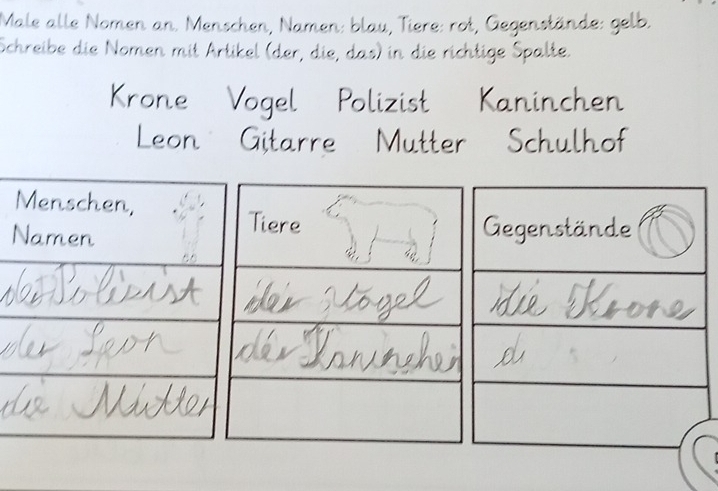 Male alle Nomen an. Menschen, Namen: blau, Tiere: rot, Gegenstände: gelb.
Schreibe die Nomen mit Artikel (der, die, das) in die richtige Spalte.
Krone Vogel Polizist Kaninchen
Leon Gitarre Mutter Schulhof
Menschen,
Namen
Tiere
Gegenstände
der Polizist
der Vogel
die Krone
der Leon
der Kaninchen
d
die Mutter